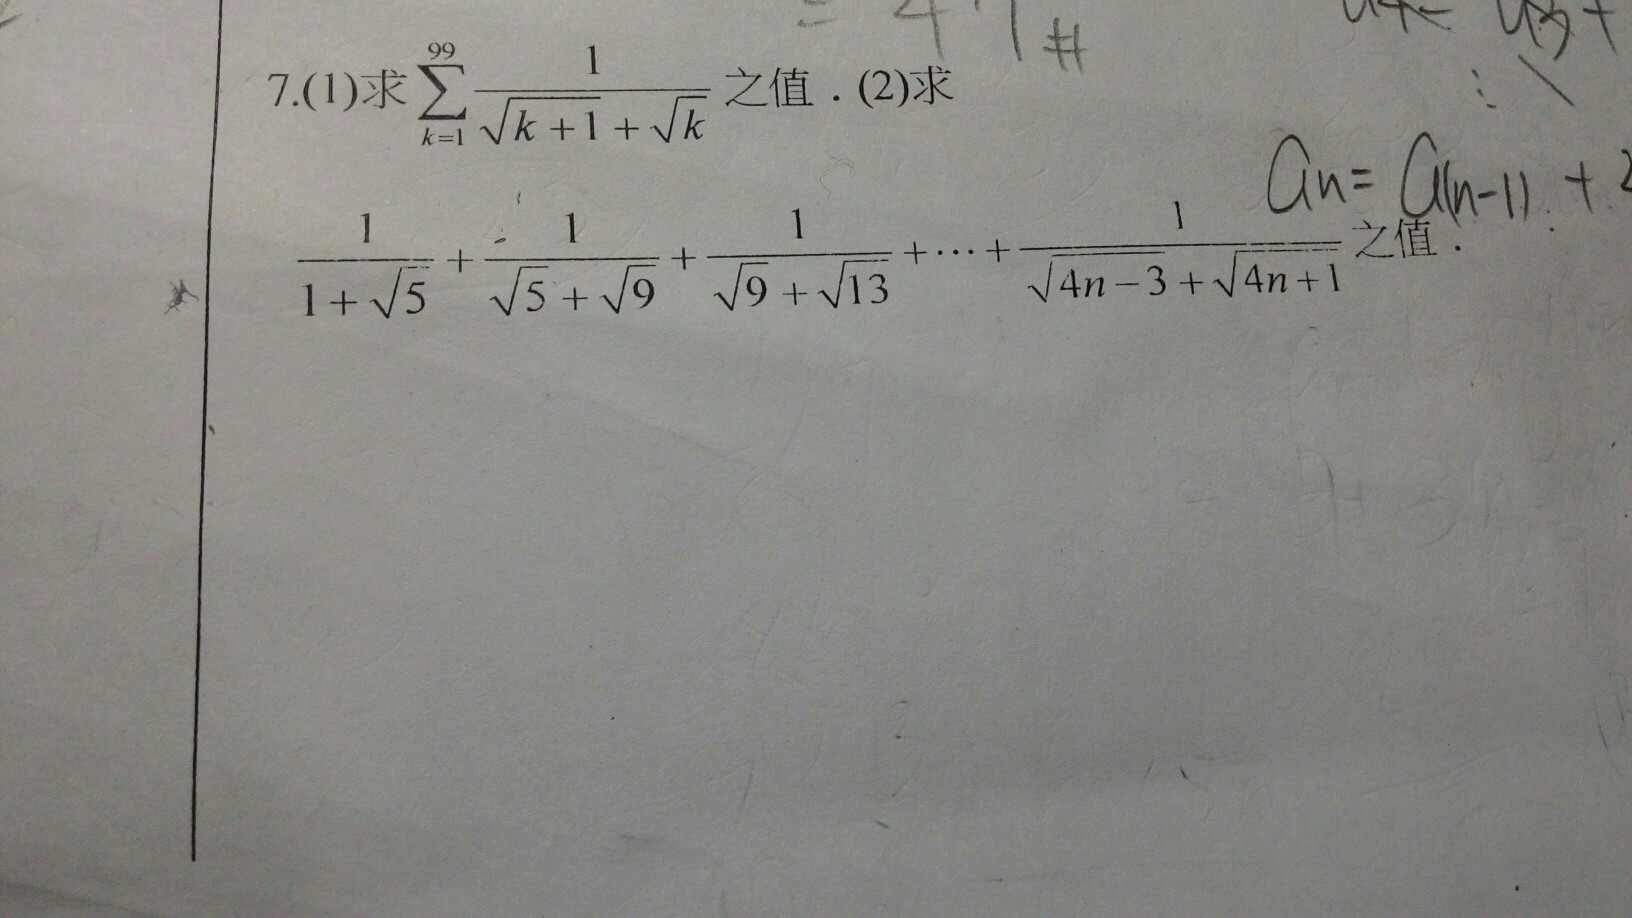 7.(1)求 \sum_{k=1}^{99} \frac{1}{\sqrt{k+1}+\sqrt{k}} 之值．(2)求
\frac{1}{1+\sqrt{5}} + \frac{1}{\sqrt{5}+\sqrt{9}} + \frac{1}{\sqrt{9}+\sqrt{13}} + \cdots + \frac{1}{\sqrt{4n-3}+\sqrt{4n+1}} 之值．
an = a(n-1) +